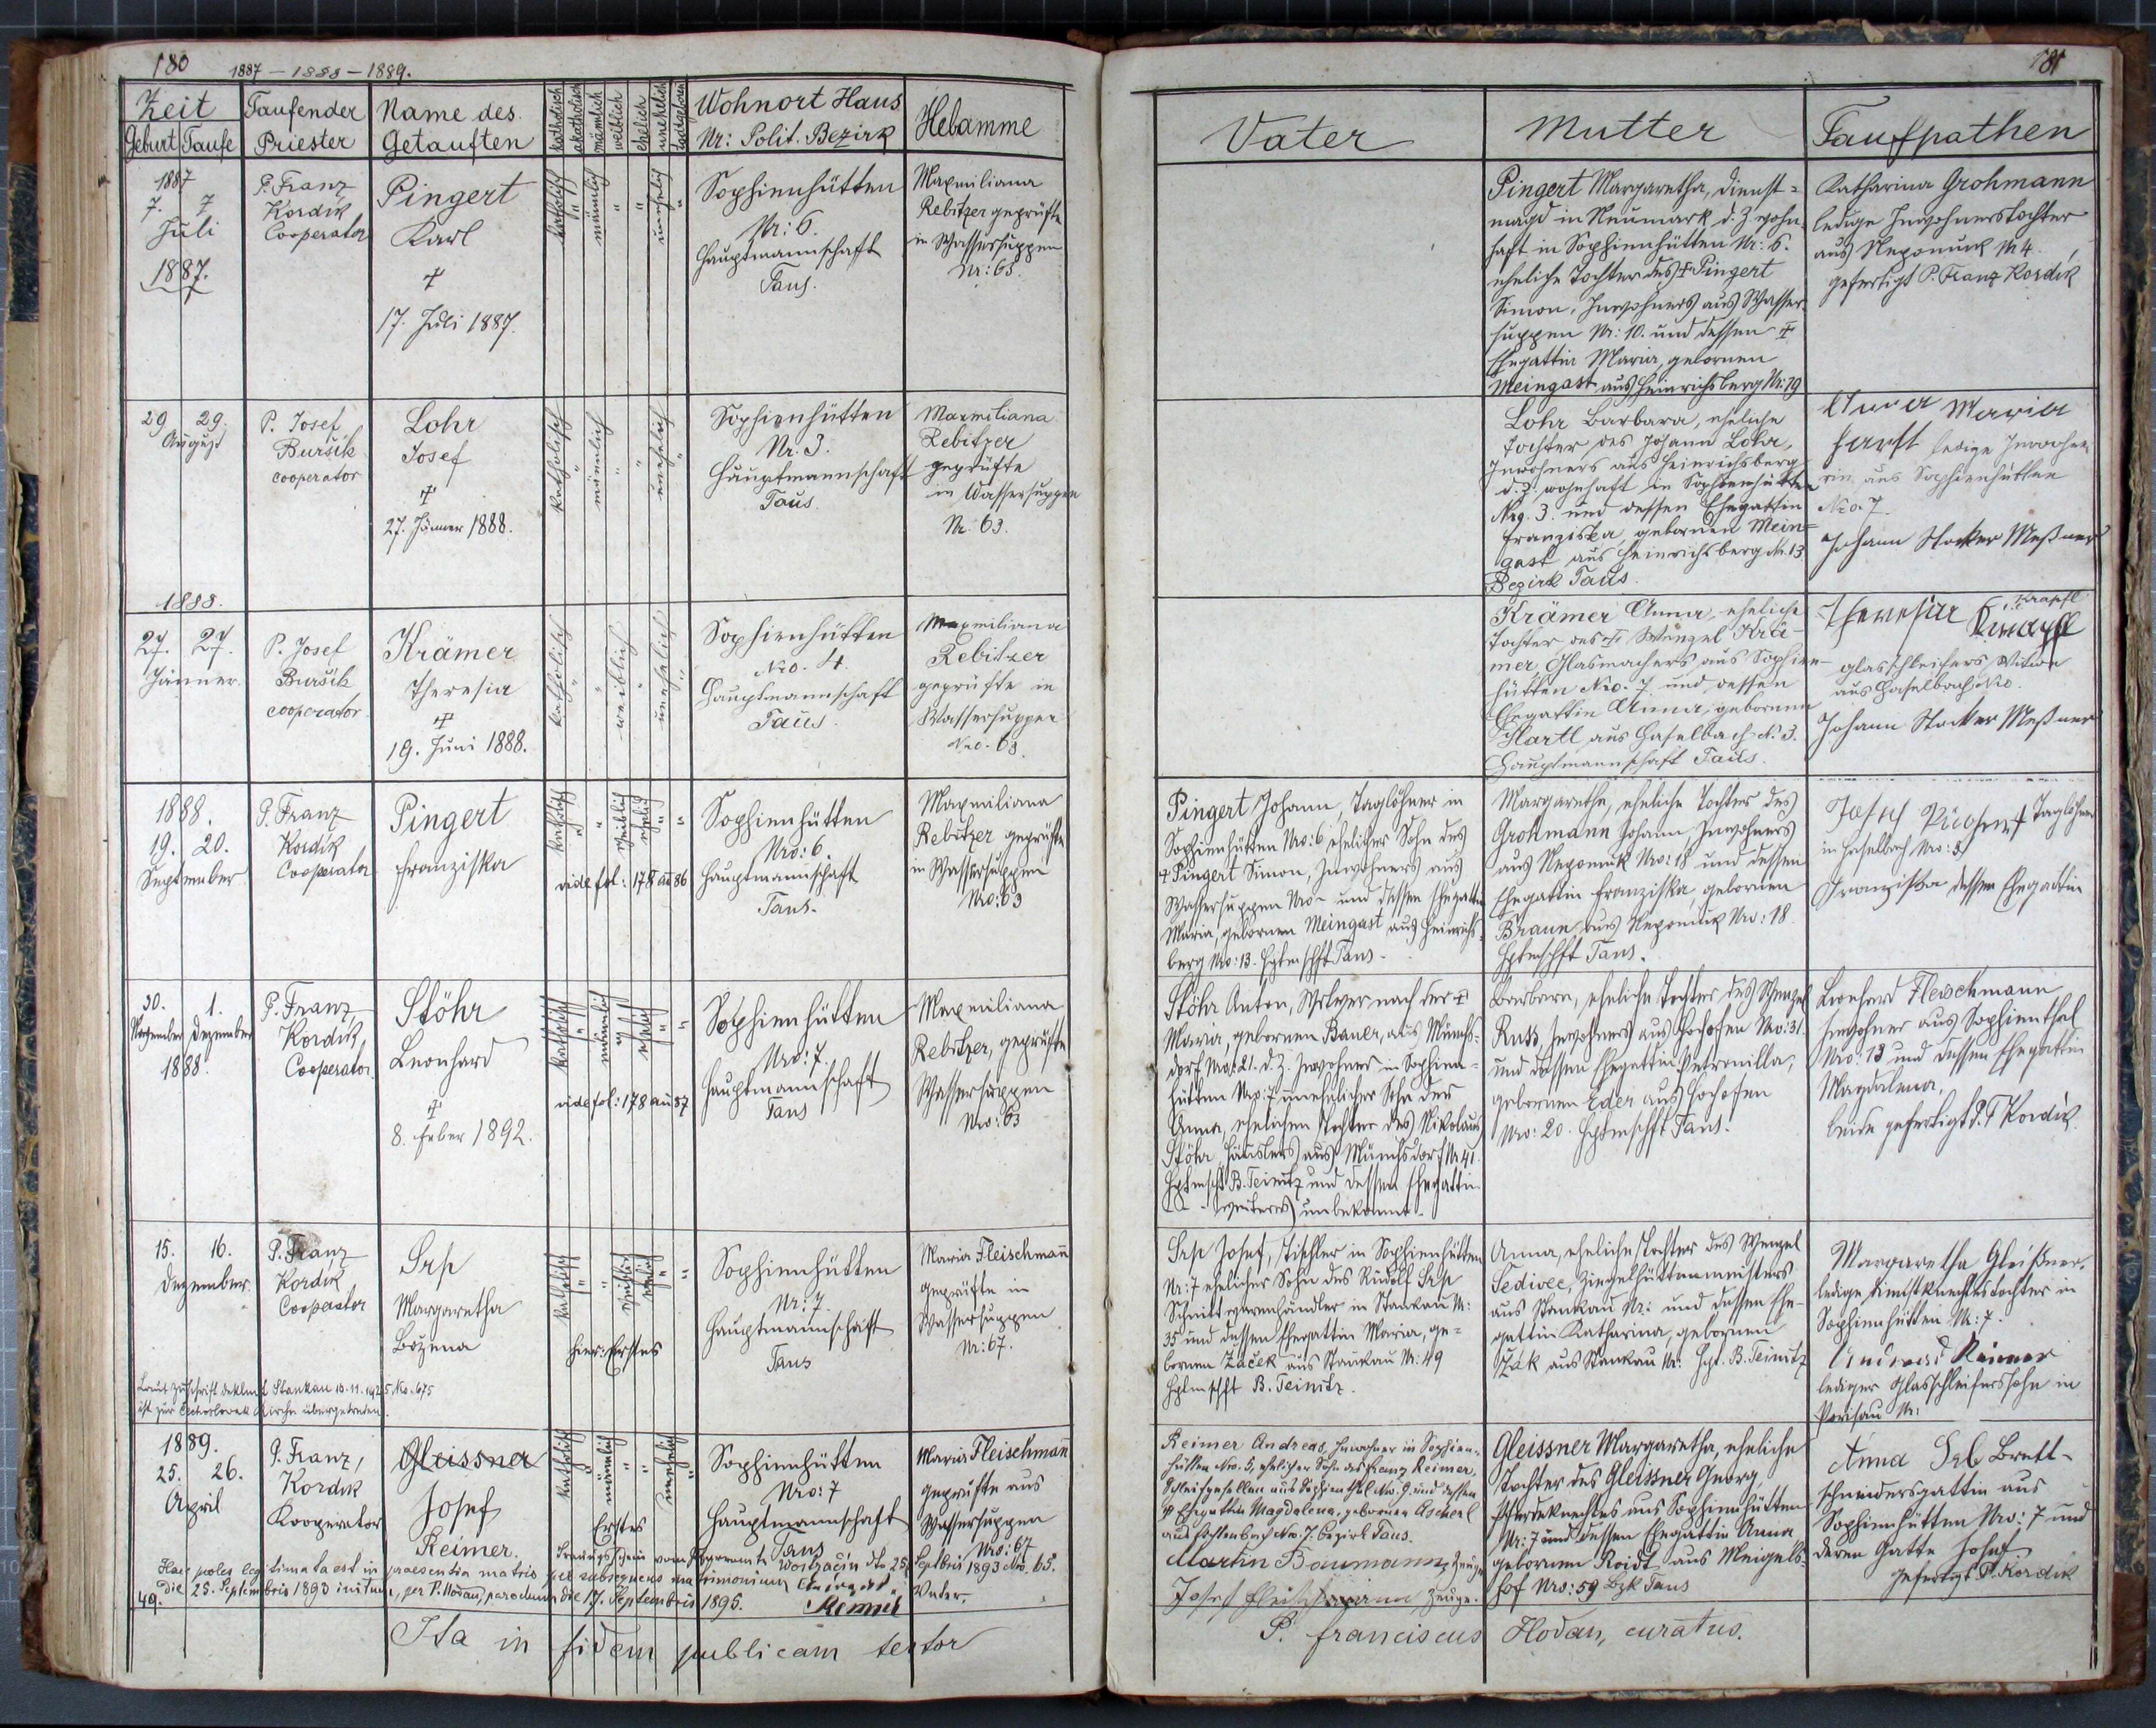 180
1887 - 1888 - 1889.
Zeit
Geburt Taufe
Taufender
Priester
Name des
Getauften
katholisch
akatholisch
männlich
weiblich
ehelich
unehelich
todtgeboren
Wohnort Haus
Nr: Polit. Bezirk
Hebamme
1887
7. 7
Juli
1887.
P. Franz
Kordík
Cooperator
Pingert
Karl
†
17. Juli 1887.
katholisch
männlich
unehelich
Sophienhütten
Nr: 6.
Hauptmannschaft
Taus.
Maxmiliana
Rebitzer geprüfte
in Wassersuppen
Nr: 63.
29 29.
August
P. Josef
Buršík
cooperator
Lohr
Josef
†
27. Jänner 1888.
katholisch
männlich
unehelich
Sophienhütten
Nr. 3.
Hauptmannschaft
Taus.
Maxmiliana
Rebitzer
geprüfte
in Wassersuppen
Nr. 63.
1888.
27. 27.
Jänner.
P. Josef
Buršík
cooperator.
Krämer
Theresia
†
19. Juni 1888.
katholisch
weiblich
unehelich
Sophienhütten
Nro. 4.
Hauptmannschaft
Taus.
Maxmiliana
Rebitzer
geprüfte in
Wassersuppen
Nro. 63.
1888.
19. 20.
September
P. Franz
Kordík
Cooperator
Pingert
Franziska
katholisch
weiblich
ehelich
vide fol: 178 au 86
Sophienhütten
Nro: 6.
Hauptmannschaft
Taus.
Maxmiliana
Rebitzer geprüfte
in Wassersuppen
Nro: 63
30. 1.
November Dezember
1888.
P. Franz
Kordík
Cooperator.
Stöhr
Leonhard
†
8. Feber 1892.
katholisch
männlich
ehelich
vide fol: 178 au 87
Sophienhütten
Nro: 7.
Hauptmannschaft
Taus
Maxmiliana
Rebitzer, geprüfte
Wassersuppen
Nro: 63
15. 16.
Dezember.
P. Franz
Kordík
Cooperator
Srp
Margaretha
Bozena
katholisch
weiblich
ehelich
hier: Erstes
Sophienhütten
Nr: 7.
Hauptmannschaft
Taus
Maria Fleischmann
geprüfte in
Wassersuppen
Nr: 67.
Laut Zuschrift Stankau 10. 11. 1925 No. 675
ist zur Kirche übergetreten.
1889.
25. 26.
April
P. Franz,
Kordík
Kooperator
Gleissner
Josef
Reimer.
katholisch
männlich
unehelich
Erstes
Sophienhütten
Nro: 7
Hauptmannschaft
Taus
Maria Fleischmann
geprüfte aus
Wassersuppen
Nro: 67
Haec proles legitimata est in praesentia matris per subsequens matrimonium
die 25. Septembris 1893 initum, per P. Hodan, parochum die 17. Septembris 1895.
Reimer Vater.
49.
Ita in fidem publicam testor
181
Vater
Mutter
Taufpathen
Pingert Margaretha, Dienst=
magd in Neumark d. Z. wohn=
haft in Sophienhütten Nr: 6.
eheliche Tochter des † Pingert
Simon, Inwohners aus Wasser=
suppen Nr: 10. und dessen †
Ehegattin Maria, gebornen
Meingast aus Heinrichsberg Nr: 79
Katharina Grohmann
ledige Inwohnerstochter
aus Nepomuk Nr 4.
gefertigt P. Franz Kordík
Lohr Barbara, eheliche
Tochter des Johann Lohr,
Inwohners aus Heinrichsberg
d. Z. wohnhaft in Sophienhütten
Nro. 3. und dessen Ehegattin
Franziska, gebornen Mein=
gast aus Heinrichsberg Nr. 13
Bezirk Taus.
Anna Maria
ledige Inwohne
rin aus Sophienhütten
Nro. 7.
Johann Stocker Meßner
Krämer Anna, eheliche
Tochter des † Wenzel Krä=
mer, Glasmachers aus Sophien=
hütten Nro. 7. und dessen
Ehegattin Anna, gebornen
Hartl aus Haselbach N. 3.
Hauptmannschaft Taus.
Theresia Krapfl
Glasschleifers Witwe
aus Haselbach Nro.
Johann Stocker Meßner
Pingert Johann, Taglöhner in
Sophienhütten Nro: 6 ehelicher Sohn des
† Pingert Simon, Inwohners aus
Wassersuppen Nro - und dessen Ehegattin
Maria, gebornen Meingast aus Heinrichs=
berg Nro: 13. Hptmschft Taus.
Margaretha, eheliche Tochter des
Grohmann Johann, Inwohners
aus Nepomuk Nro: 18 und dessen
Ehegattin Franziska, gebornen
Braun aus Nepomuk Nro: 18.
Hptmschft Taus.
Josef Taglöhner
in Haselbach Nro: 3
Franziska dessen Ehegattin
Stöhr Anton, nach der †
Maria, gebornen Bauer, aus Münchs=
dorf Nro: 21. d. Z. Inwohner in Sophien=
hütten Nro: 7 unehelicher Sohn der
Anna, ehelichen Tochter des Nikolaus
Stöhr, Häuslers aus Münchsdorf Nr 41.
Hptmschft B. Teinitz und dessen Ehegattin
unbekannt.
Barbara, eheliche Tochter des Wenzel
Russ, Inwohners aus Hochofen Nro: 31.
und dessen Ehegattin Petronilla,
gebornen Eder aus Hochofen
Nro: 20. Hptmschft Taus.
Leonhard Fleischmann
Inwohner aus Sophienthal
Nro: 13 und dessen Ehegattin
Magdalena,
beide gefertigt P. F Kordík.
Srp Josef, Tischler in Sophienhütten
Nr: 7 ehelicher Sohn des Rudolf Srp
Schnittwarenhändler in Stankau Nr:
35 und dessen Ehegattin Maria, ge=
bornen Žaček aus Stankau Nr: 49
Hptmschft B. Teinitz.
Anna, eheliche Tochter des Wenzel
Sedivec, Ziegelhüttenmeisters
aus Stankau Nr: und dessen Ehe=
gattin Katharina, gebornen
Žák aus Stankau Nr: Hpt. B. Teinitz
Margaretha Gleißner.
ledige Tochter in
Sophienhütten Nr: 7.
Andreas Reimer
lediger Glasschleiferssohn in
Parisau Nr:
Reimer Andreas, Inwohner in Sophien=
hütten Nro. 5, ehelicher Sohn des Franz Reimer,
Schleifgesellen aus Sophienthal Nro. 9 und dessen
† Ehegattin Magdalena, gebornen Ascherl
aus Fichtenbach Nro. 7. Bezirk Taus.
Martin Baumann, Zeuge
Josef Fleischmann, Zeuge.
Gleissner Margaretha, eheliche
Tochter des Gleissner Georg,
Pferdeknechtes aus Sophienhütten
Nr: 7 und dessen Ehegattin Anna
gebornen Roidl aus Meigels=
hof Nro: 59 Bzk Taus
Anna Srb Brett=
schneidersgattin aus
Sophienhütten Nro: 7 und
deren Gatte Josef
gefertigt P. Kordík
P. Franciscus Hodan, curatus.